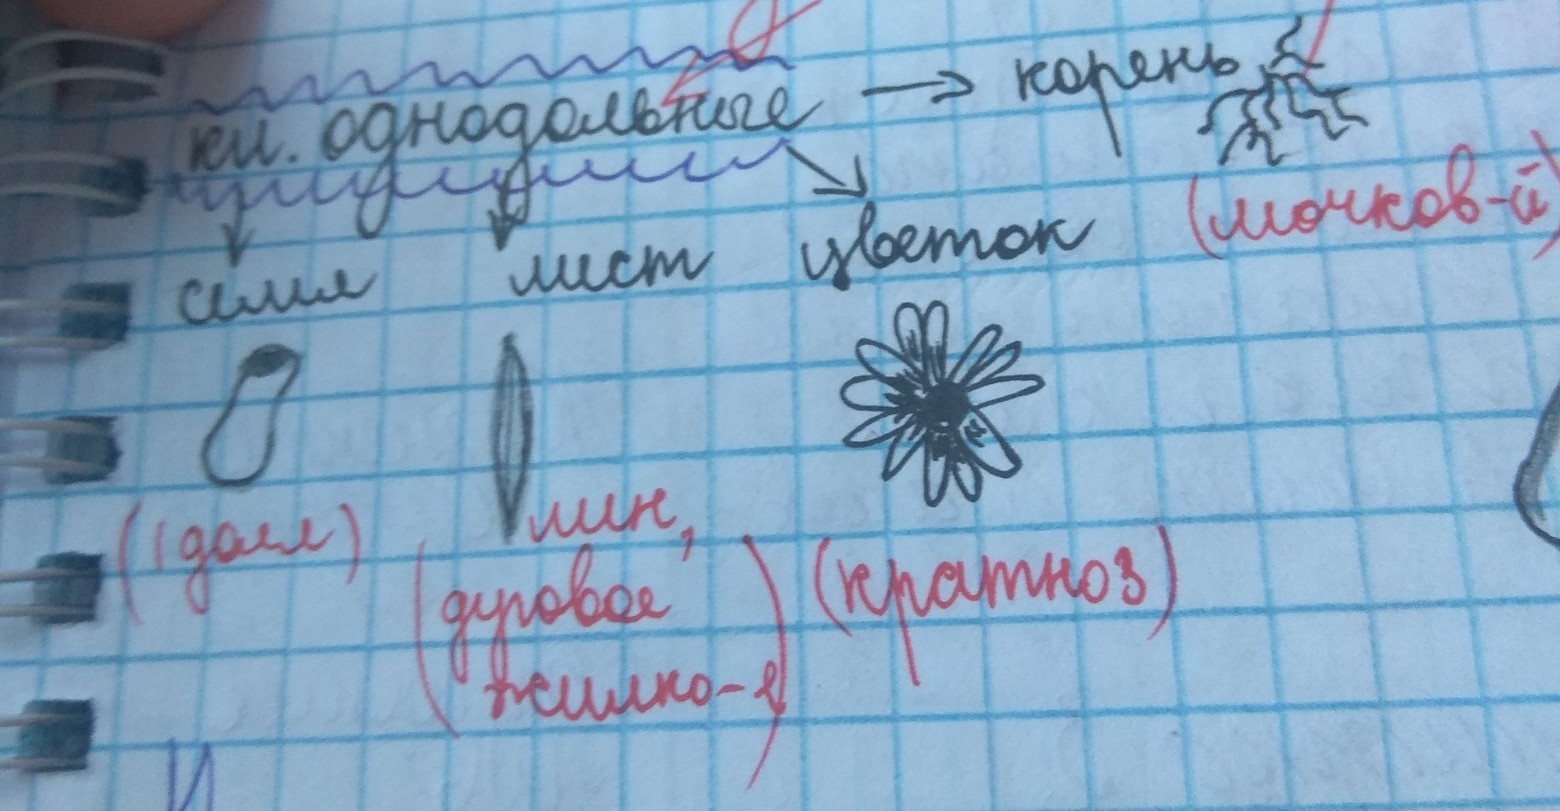 кл. однодольные → корень
(мочков-й)
семя лист цветок
(1 доля)
(лин,
дуговое
жилко-е)
(кратно3)